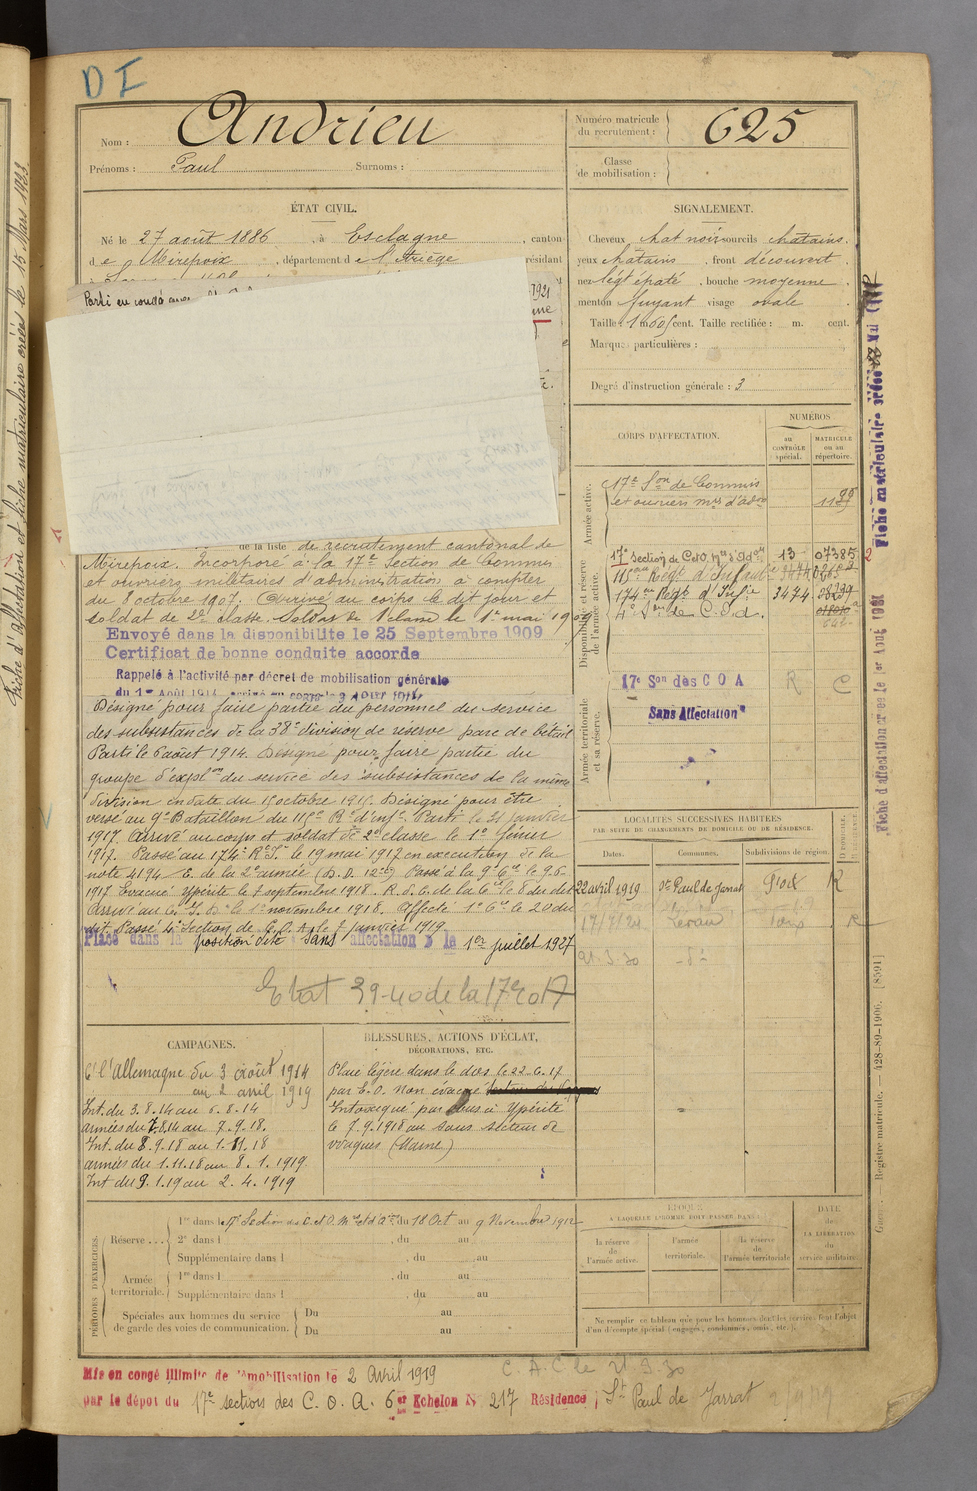 D I
Nom : Andrieu
Prénoms : Paul Surnoms :
Numéro matricule du recrutement : 625
Classe de mobilisation :
ÉTAT CIVIL.
Né le 27 août 1886, à Esclagne, canton
de Mirepoix, département de l'Ariège résidant
Parti en congé
1921
SIGNALEMENT.
Cheveux chat noir sourcils chatains.
yeux chatains, front découvert.
nez légt épaté, bouche moyenne
menton fuyant visage ovale
Taille : 1 m 60 cent. Taille rectifiée : m. cent.
Marques particulières :
Degré d'instruction générale : 3
CORPS D'AFFECTATION.
NUMÉROS
au CONTRÔLE spécial.
MATRICULE ou au répertoire.
Armée active.
17e Son de Commis
et ouvriers mres d'adon
Disponibilité et réserve de l'armée active.
17e Section de C et O. mres d'Adon 13 07385
115ème Régt d'Infanterie
174ème Régt d'Infie 3474
4e Son de C.O.A.
Armée territoriale et sa réserve.
17e Son des C O A R C
Sans Affectation
de la liste de recrutement cantonal de
Mirepoix. Incorporé à la 17e Section de Commis
et ouvriers militaires d'administration à compter
du 8 octobre 1907. Arrivé au corps le dit jour et
soldat de 2e classe. Soldat de 1e classe le 1er mai 1909
Envoyé dans la disponibilite le 25 Septembre 1909
Certificat de bonne conduite accorde
Rappelé à l'activité par décret de mobilisation générale
du 1er Août 1914 arrivé au corps le 3 AOUT 1914
Désigné pour faire partie du personnel du service
des subsistances de la 38e division de réserve parc de bétail
Parti le 6 août 1914. Désigné pour faire partie du
groupe d'explon du service des subsistances de la même
division en date du 15 octobre 1915. Désigné pour être
versé au 9e Bataillon du 115e R. d'infie. Parti le 21 janvier
1917. Arrivé au corps et soldat de 2e classe le 1er février
1917. Passé au 174e R.I. le 19 mai 1917 en exécution de la
note 4194 E. de la 2e armée (D.D. 12e) Passé à la 9e Cie le 9.6.
1917 Evacué Ypérité le 7 septembre 1918. R. d. C. de la Cie le 8 du dit
Arrivé au C. I. D. le 1er novembre 1918. Affecté 1e Cie le 20 du
dit. Passé 4e Section de C.O.A. le 7 janvier 1919.
Placé dans la position dite " sans affectation " le 1er juillet 1927
Etat 39-40 de la 17e
LOCALITÉS SUCCESSIVES HABITÉES
PAR SUITE DE CHANGEMENTS DE DOMICILE OU DE RÉSIDENCE.
Dates. Communes. Subdivisions de région.
22 avril 1919 St Paul de Jarrat Foix R
17/7/24 Léran Foix R
21.3.30 - d° -
CAMPAGNES.
C/ l'Allemagne du 3 Août 1914
au 2 avril 1919
Int. du 3.8.14 au 6.8.14
armées du 7.8.14 au 7.9.18.
Int. du 8.9.18 au 1.11.18
armées du 1.11.18 au 8.1.1919
Int du 9.1.19 au 2.4.1919
BLESSURES, ACTIONS D'ÉCLAT,
DÉCORATIONS, ETC.
Plaie légère dans le dos le 22.6.17
par E.O. Non évacué
Intoxiqué par obus à Ypérite
le 7.9.1918 au sous secteur de
Vraques (Marne)
PÉRIODES D'EXERCICES.
Réserve . . . 1re dans la 17e Section de C. et O. Mres d'Aon du 18 Oct au 9 Novembre 1912
2e dans l , du au
Supplémentaire dans l , du au
Armée territoriale. 1re dans l , du au
Supplémentaire dans l , du au
Spéciales aux hommes du service
de garde des voies de communication.
Du au
Du au
ÉPOQUE
À LAQUELLE L'HOMME DOIT PASSER DANS
la réserve de l'armée active.
l'armée territoriale.
la réserve de l'armée territoriale
DATE de LA LIBÉRATION du service militaire.
Ne remplir ce tableau que pour les hommes dont les services font l'objet
d'un décompte spécial (engagés, condamnés, omis, etc.).
Mis en congé illimité de démobilisation le 2 Avril 1919
par le dépôt du 17e section des C. O. A. 6e Echelon N° 217 Résidence St Paul de Jarrat
C. A. C le 21.3.30
Fiche d'affectation et fiche matriculaire créées le 15 Mars 1923
Fiche matriculaire créée
Fiche d'affectation créée le 1er Aout 1921
Registre matricule. — 428-89-1906. [8591]